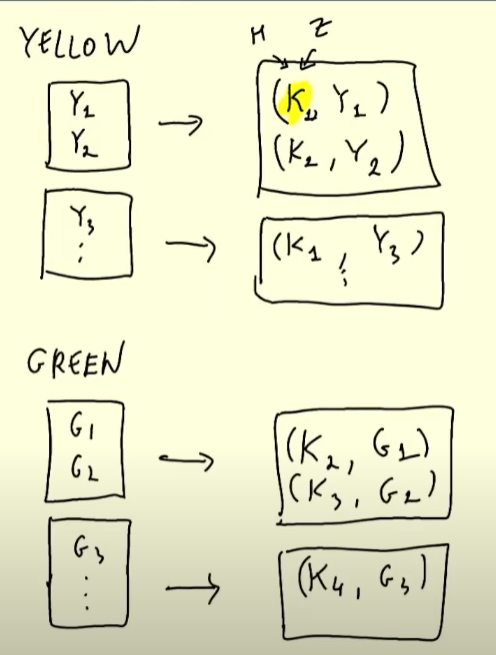 YELLOW
M Z
Y1
Y2
(K1, Y1)
(K2, Y2)
Y3
⋮
(K1, Y3)
⋮
GREEN
G1
G2
(K2, G1)
(K3, G2)
G3
⋮
(K4, G3)